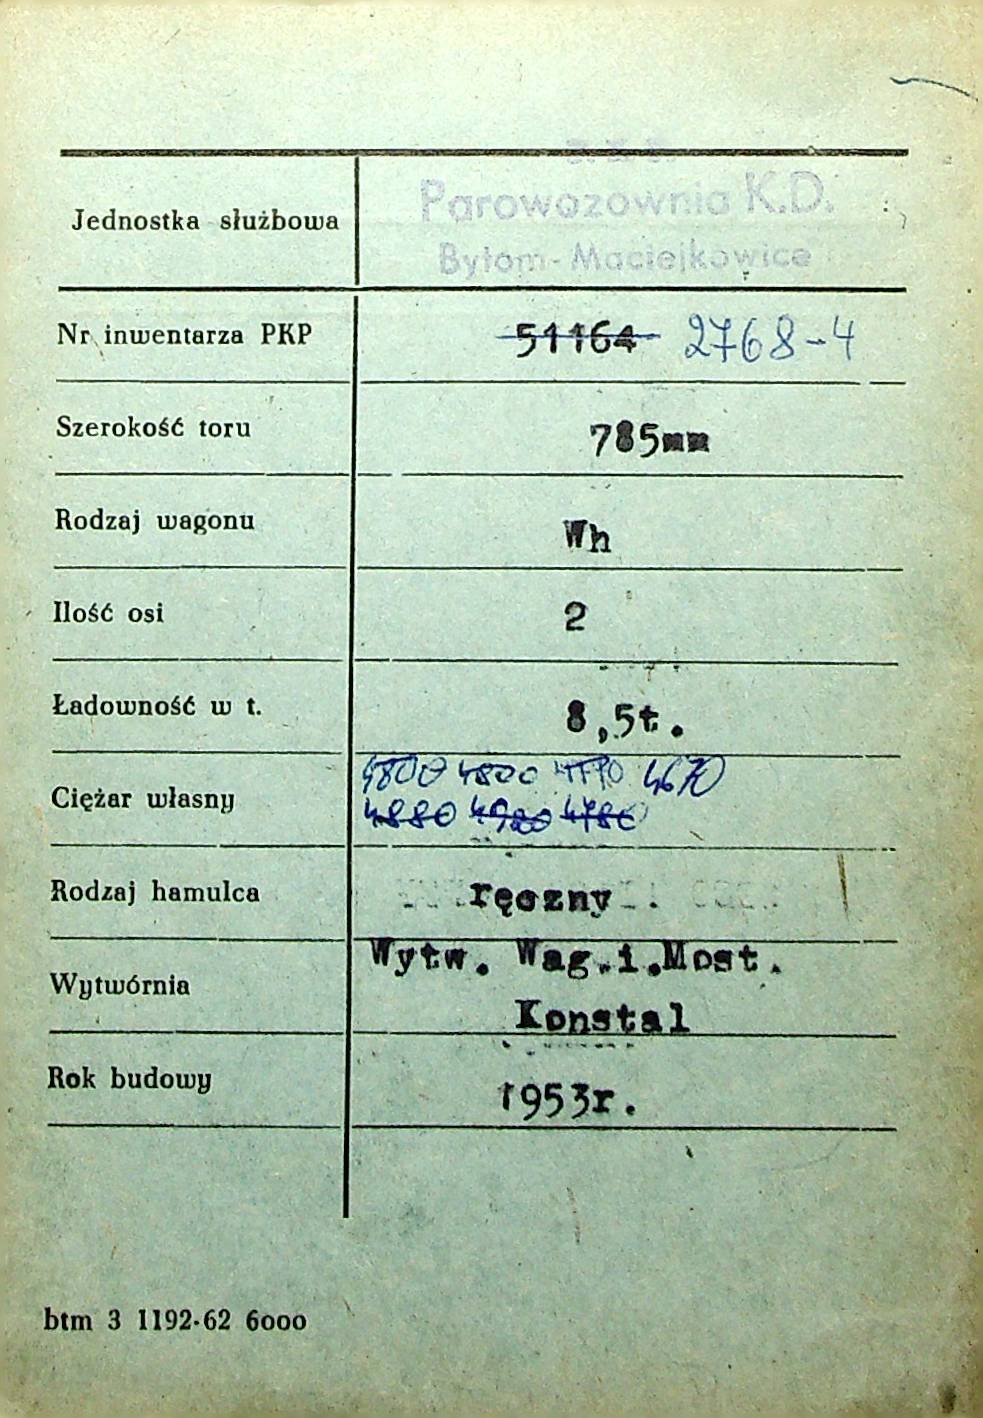 Jednostka służbowa Parowozownia K.D.
Bytom-Maciejkowice
Nr inwentarza PKP 51164 2768-4
Szerokość toru 785mm
Rodzaj wagonu Wh
Ilość osi 2
Ładowność w t. 8,5t.
4800 4800 4670
Ciężar własny 4880 4980 4780
Rodzaj hamulca ręczny
Wytw. Wag.i.Most.
Wytwórnia
Konstal
Rok budowy 1953r.
btm 3 1192-62 6ooo